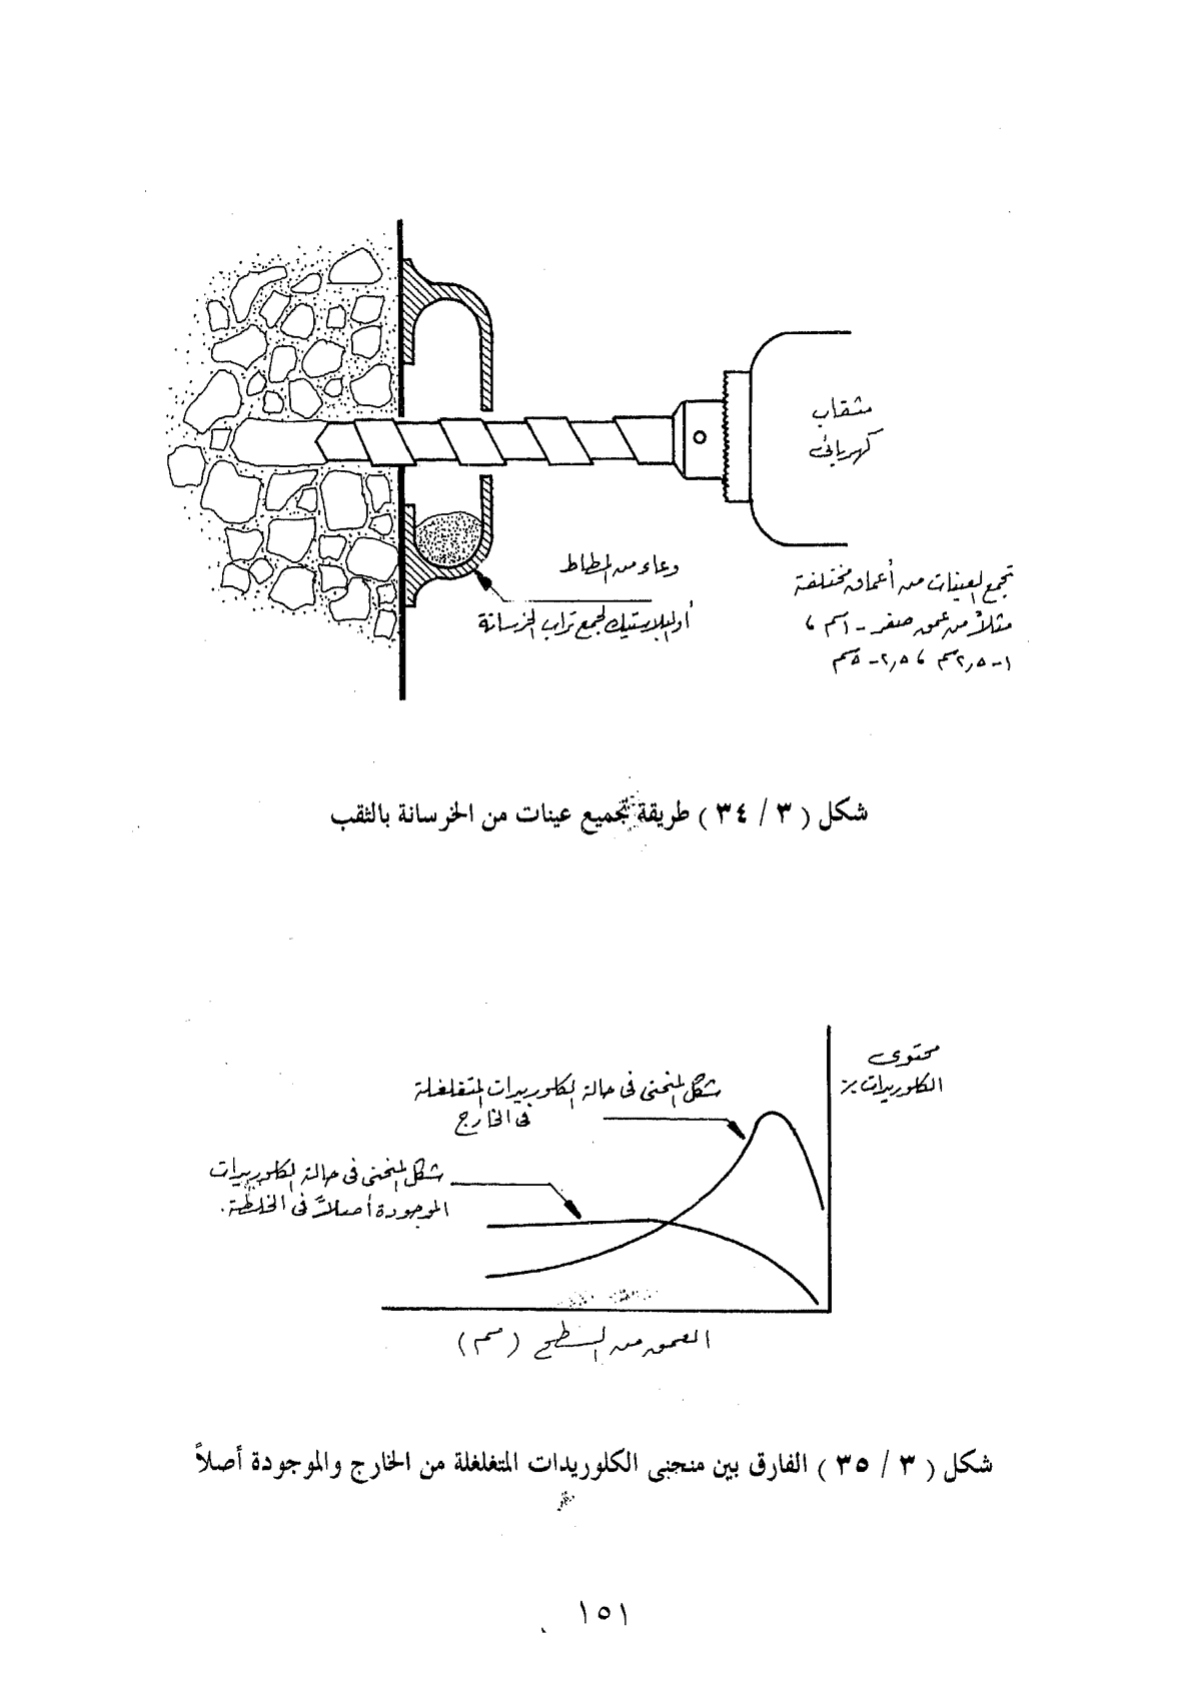 مثقاب
كهربائى
وعاء من المطاط
أو البلاستيك لجمع تراب الخرسانة
تجمع العينات من أعماق مختلفة
مثلاً من عمق صفر - ١سم ،
١-٢,٥سم ، ٢,٥-٥سم
شكل ( ٣ / ٣٤ ) طريقة تجميع عينات من الخرسانة بالثقب
محتوى
الكلوريدات ٪
شكل المنحنى فى حالة الكلوريدات المتغلغلة
فى الخارج
شكل المنحنى فى حالة الكلوريدات
الموجودة أصلاً فى الخلطة.
العمق من السطح (سم)
شكل ( ٣ / ٣٥ ) الفارق بين منحنى الكلوريدات المتغلغلة من الخارج والموجودة أصلاً
١٥١